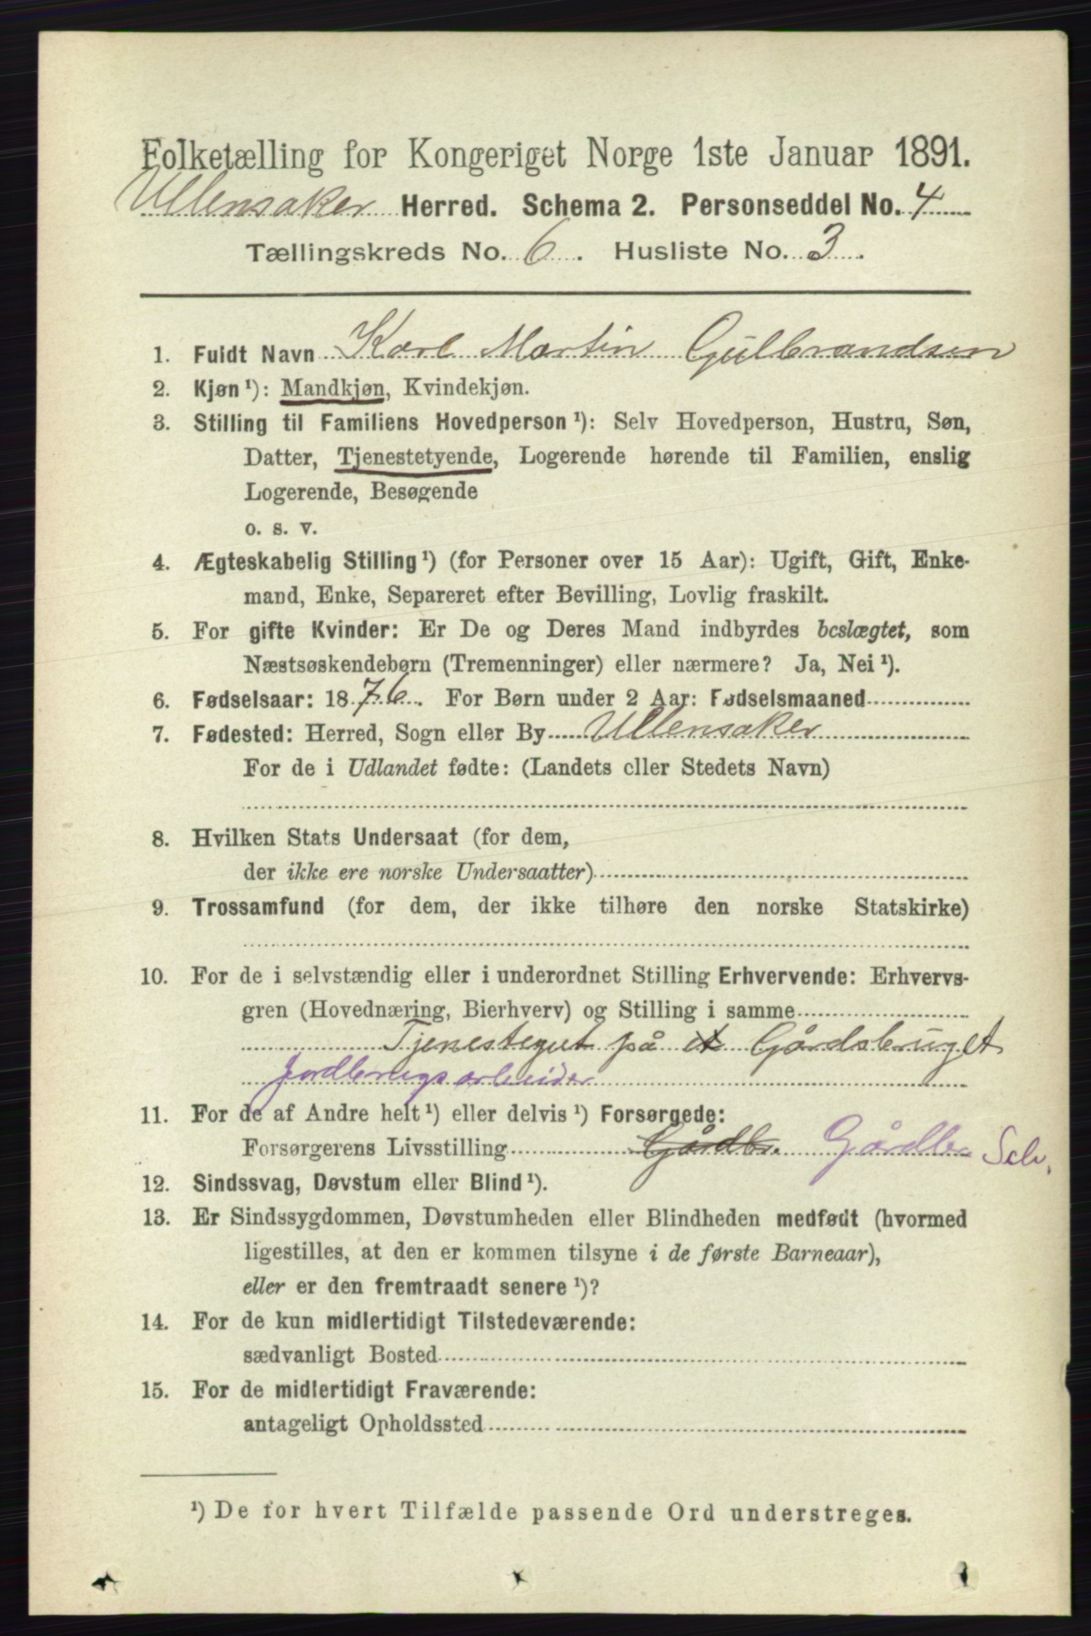 Folketælling for Kongeriget Norge 1ste Januar 1891.
Ullensaker Herred. Schema 2. Personseddel No. 4
Tællingskreds No. 6. Husliste No. 3.
1. Fuldt Navn Karl Martin Gulbrandsen
2. Kjøn ¹): Mandkjøn, Kvindekjøn.
3. Stilling til Familiens Hovedperson ¹): Selv Hovedperson, Hustru, Søn,
Datter, Tjenestetyende, Logerende hørende til Familien, enslig
Logerende, Besøgende
o. s. v.
4. Ægteskabelig Stilling ¹) (for Personer over 15 Aar): Ugift, Gift, Enke-
mand, Enke, Separeret efter Bevilling, Lovlig fraskilt.
5. For gifte Kvinder: Er De og Deres Mand indbyrdes beslægtet, som
Næstsøskendebørn (Tremenninger) eller nærmere? Ja, Nei ¹).
6. Fødselsaar: 1876. For Børn under 2 Aar: Fødselsmaaned
7. Fødested: Herred, Sogn eller By Ullensaker
For de i Udlandet fødte: (Landets eller Stedets Navn)
8. Hvilken Stats Undersaat (for dem,
der ikke ere norske Undersaatter)
9. Trossamfund (for dem, der ikke tilhøre den norske Statskirke)
10. For de i selvstændig eller i underordnet Stilling Erhvervende: Erhvervs-
gren (Hovednæring, Bierhverv) og Stilling i samme
Tjenestegut på et Gårdsbruget
Jordbrugsarbeider
11. For de af Andre helt ¹) eller delvis ¹) Forsørgede:
Forsørgerens Livsstilling Gårdbr. Gårdbr Selv.
12. Sindssvag, Døvstum eller Blind ¹).
13. Er Sindssygdommen, Døvstumheden eller Blindheden medfødt (hvormed
ligestilles, at den er kommen tilsyne i de første Barneaar),
eller er den fremtraadt senere ¹)?
14. For de kun midlertidigt Tilstedeværende:
sædvanligt Bosted
15. For de midlertidigt Fraværende:
antageligt Opholdssted
¹) De for hvert Tilfælde passende Ord understreges.